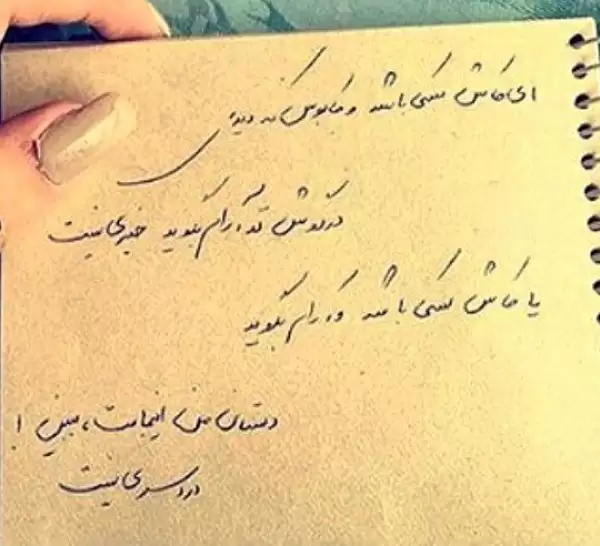 ای کاش کسی باشد و کابوس که دیدی
در گوش تو آرام بگوید خبری نیست
یا کاش کسی باشد و آرام بگوید
دستان من اینجاست، ببین!
دردسری نیست